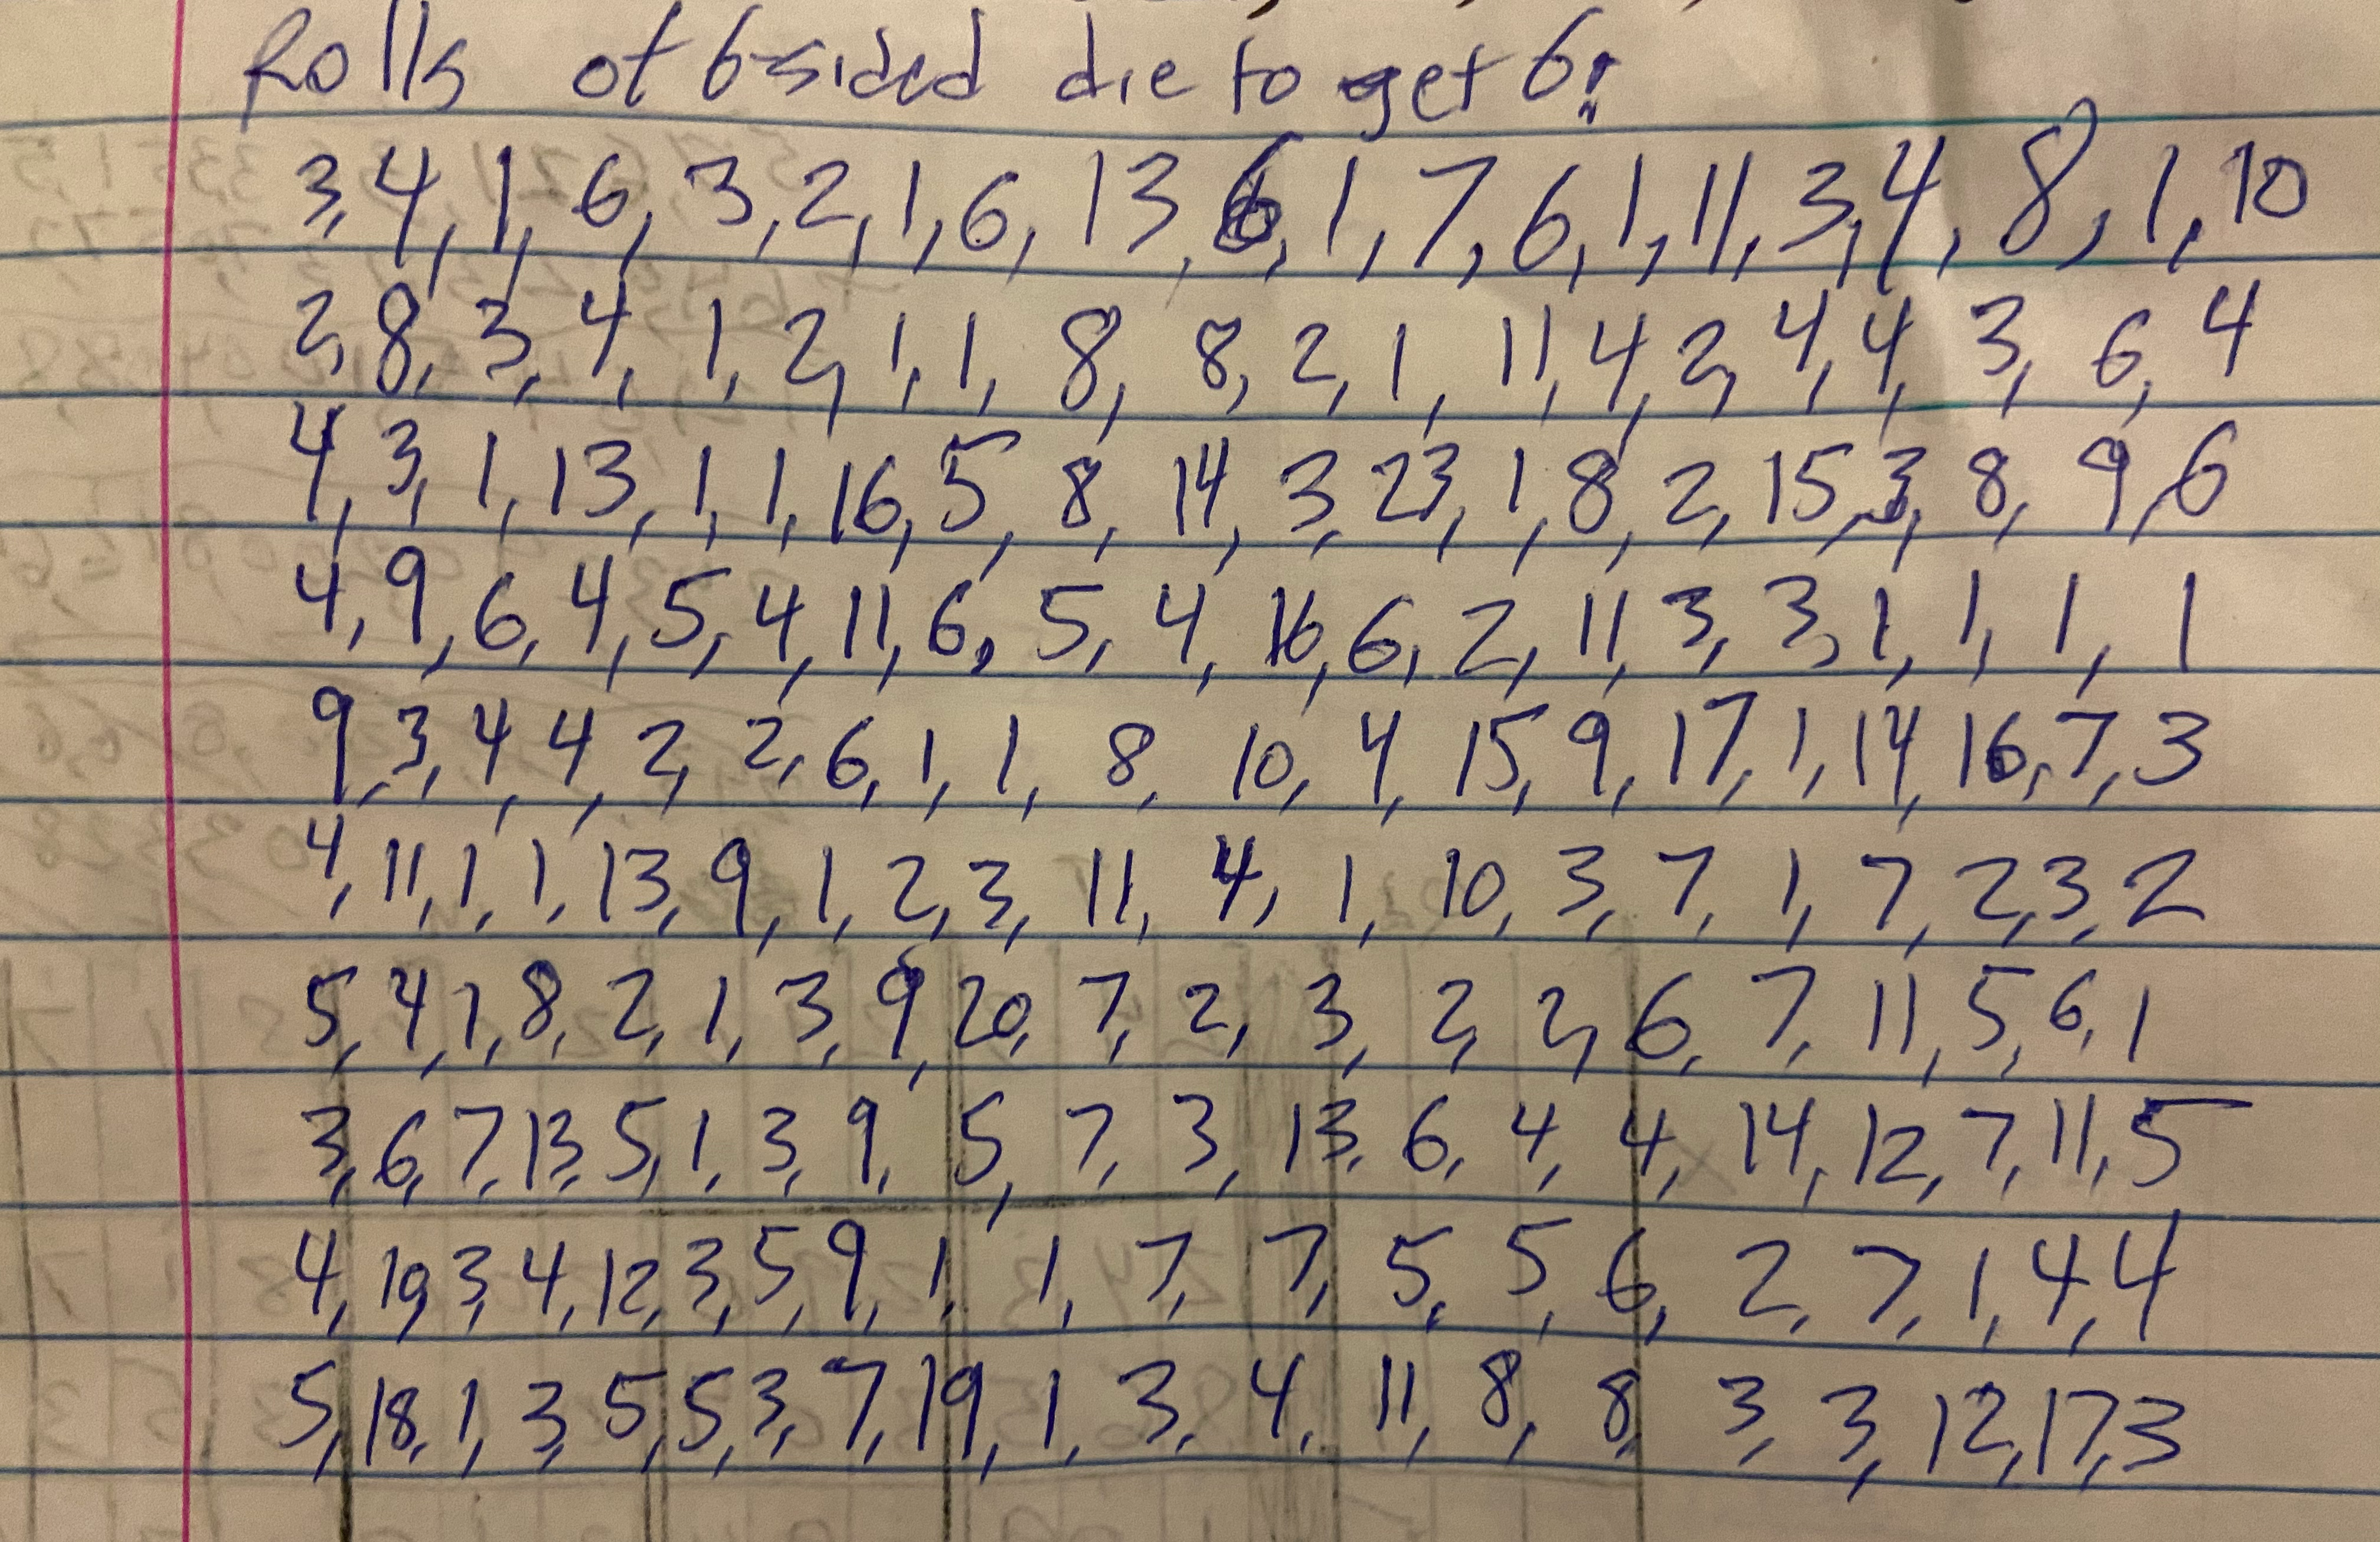 Rolls of 6-sided die to get 6:
3, 4, 1, 6, 3, 2, 1, 6, 13, 6, 1, 7, 6, 1, 11, 3, 4, 8, 1, 10
2, 8, 3, 4, 1, 2, 1, 1, 8, 8, 2, 1, 11, 4, 2, 4, 4, 3, 6, 4
4, 3, 1, 13, 1, 1, 16, 5, 8, 14, 3, 23, 1, 8, 2, 15, 3, 8, 9, 6
4, 9, 6, 4, 5, 4, 11, 6, 5, 4, 16, 6, 2, 11, 3, 3, 1, 1, 1, 1
9, 3, 4, 4, 2, 2, 6, 1, 1, 8, 10, 4, 15, 9, 17, 1, 14, 16, 7, 3
4, 11, 1, 1, 13, 9, 1, 2, 3, 11, 4, 1, 10, 3, 7, 1, 7, 2, 3, 2
5, 4, 1, 8, 2, 1, 3, 9, 20, 7, 2, 3, 2, 2, 6, 7, 11, 5, 6, 1
3, 6, 7, 13, 5, 1, 3, 9, 5, 7, 3, 13, 6, 4, 4, 14, 12, 7, 11, 5
4, 19, 3, 4, 12, 3, 5, 9, 1, 1, 7, 7, 5, 5, 6, 2, 7, 1, 4, 4
5, 18, 1, 3, 5, 5, 3, 7, 19, 1, 3, 4, 11, 8, 8, 3, 3, 12, 17, 3